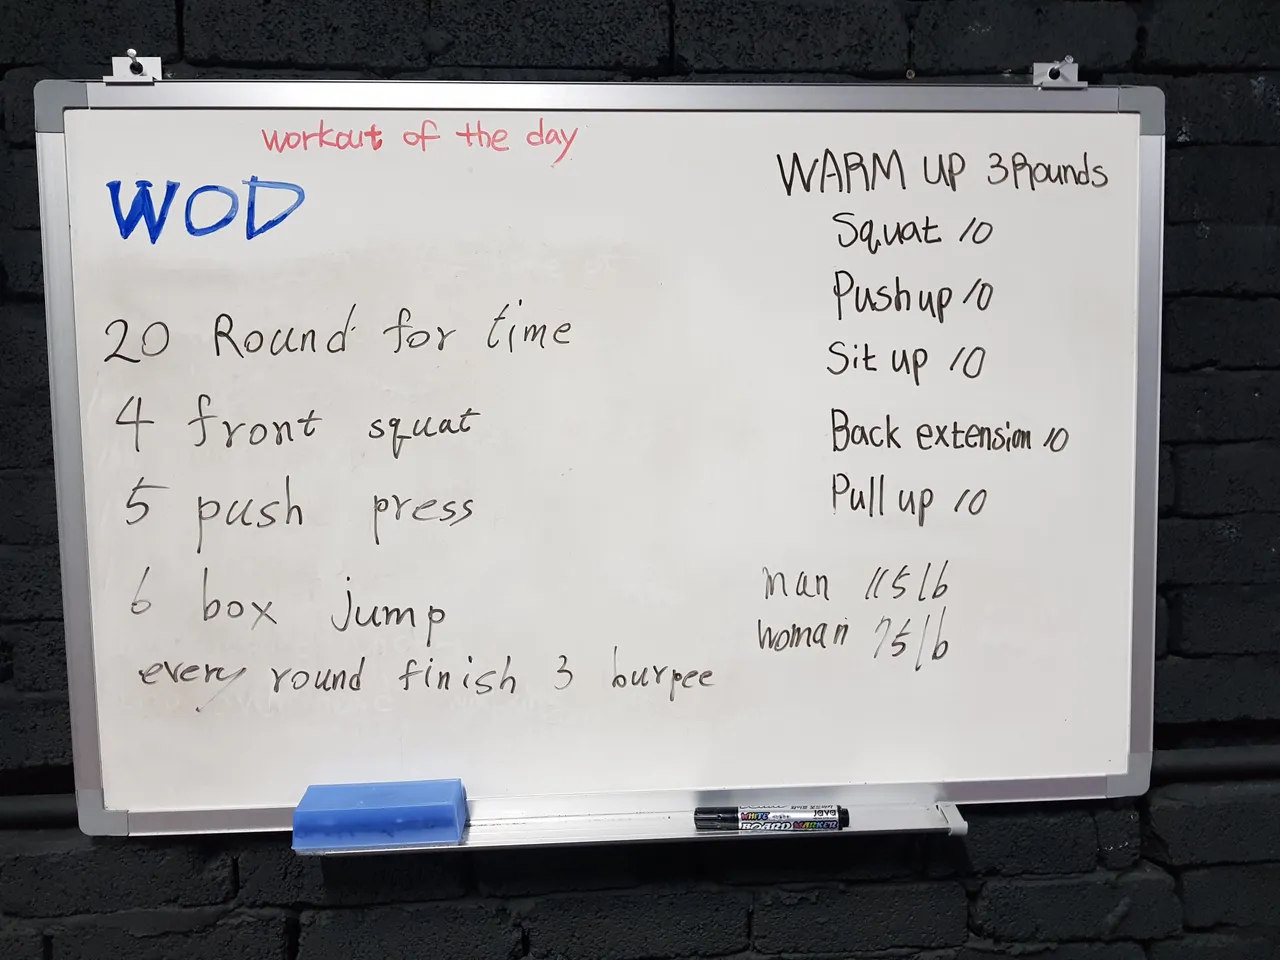 workout of the day
WOD
20 Round for time
4 front squat
5 push press
6 box jump
every round finish 3 burpee
WARM UP 3Rounds
Squat 10
Push up 10
Sit up 10
Back extension 10
Pull up 10
man 115 lb
woman 75 lb
WHITE java
BOARD MARKER